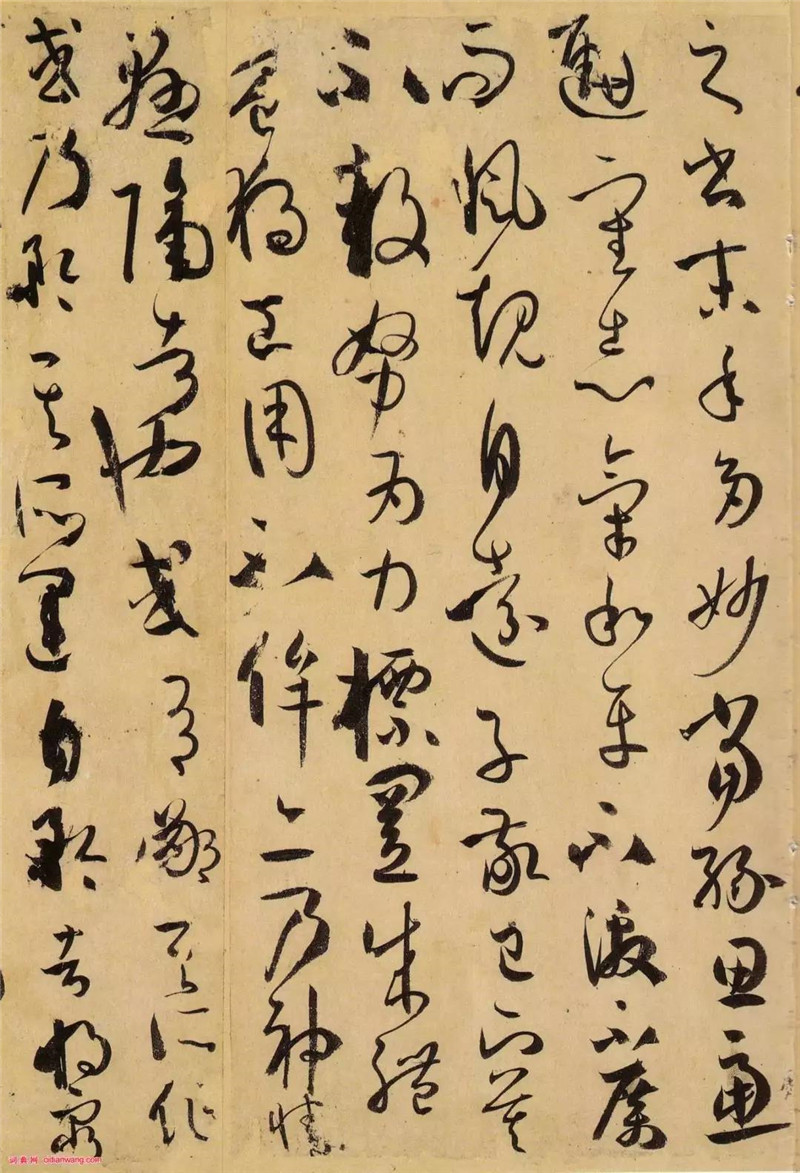 之書末年多妙當緣思慮
通審志氣和平不激不厲
而風規自遠子敬已下莫
不鼓努爲力標置成體
豈獨工用不侔亦乃神情
懸隔者也或有鄙其所作
或乃矜其所運自矜者將窮
词典网 cidianwang.com